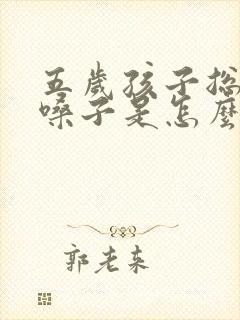 五歲孩子總
嗓子是怎麼
郭老来